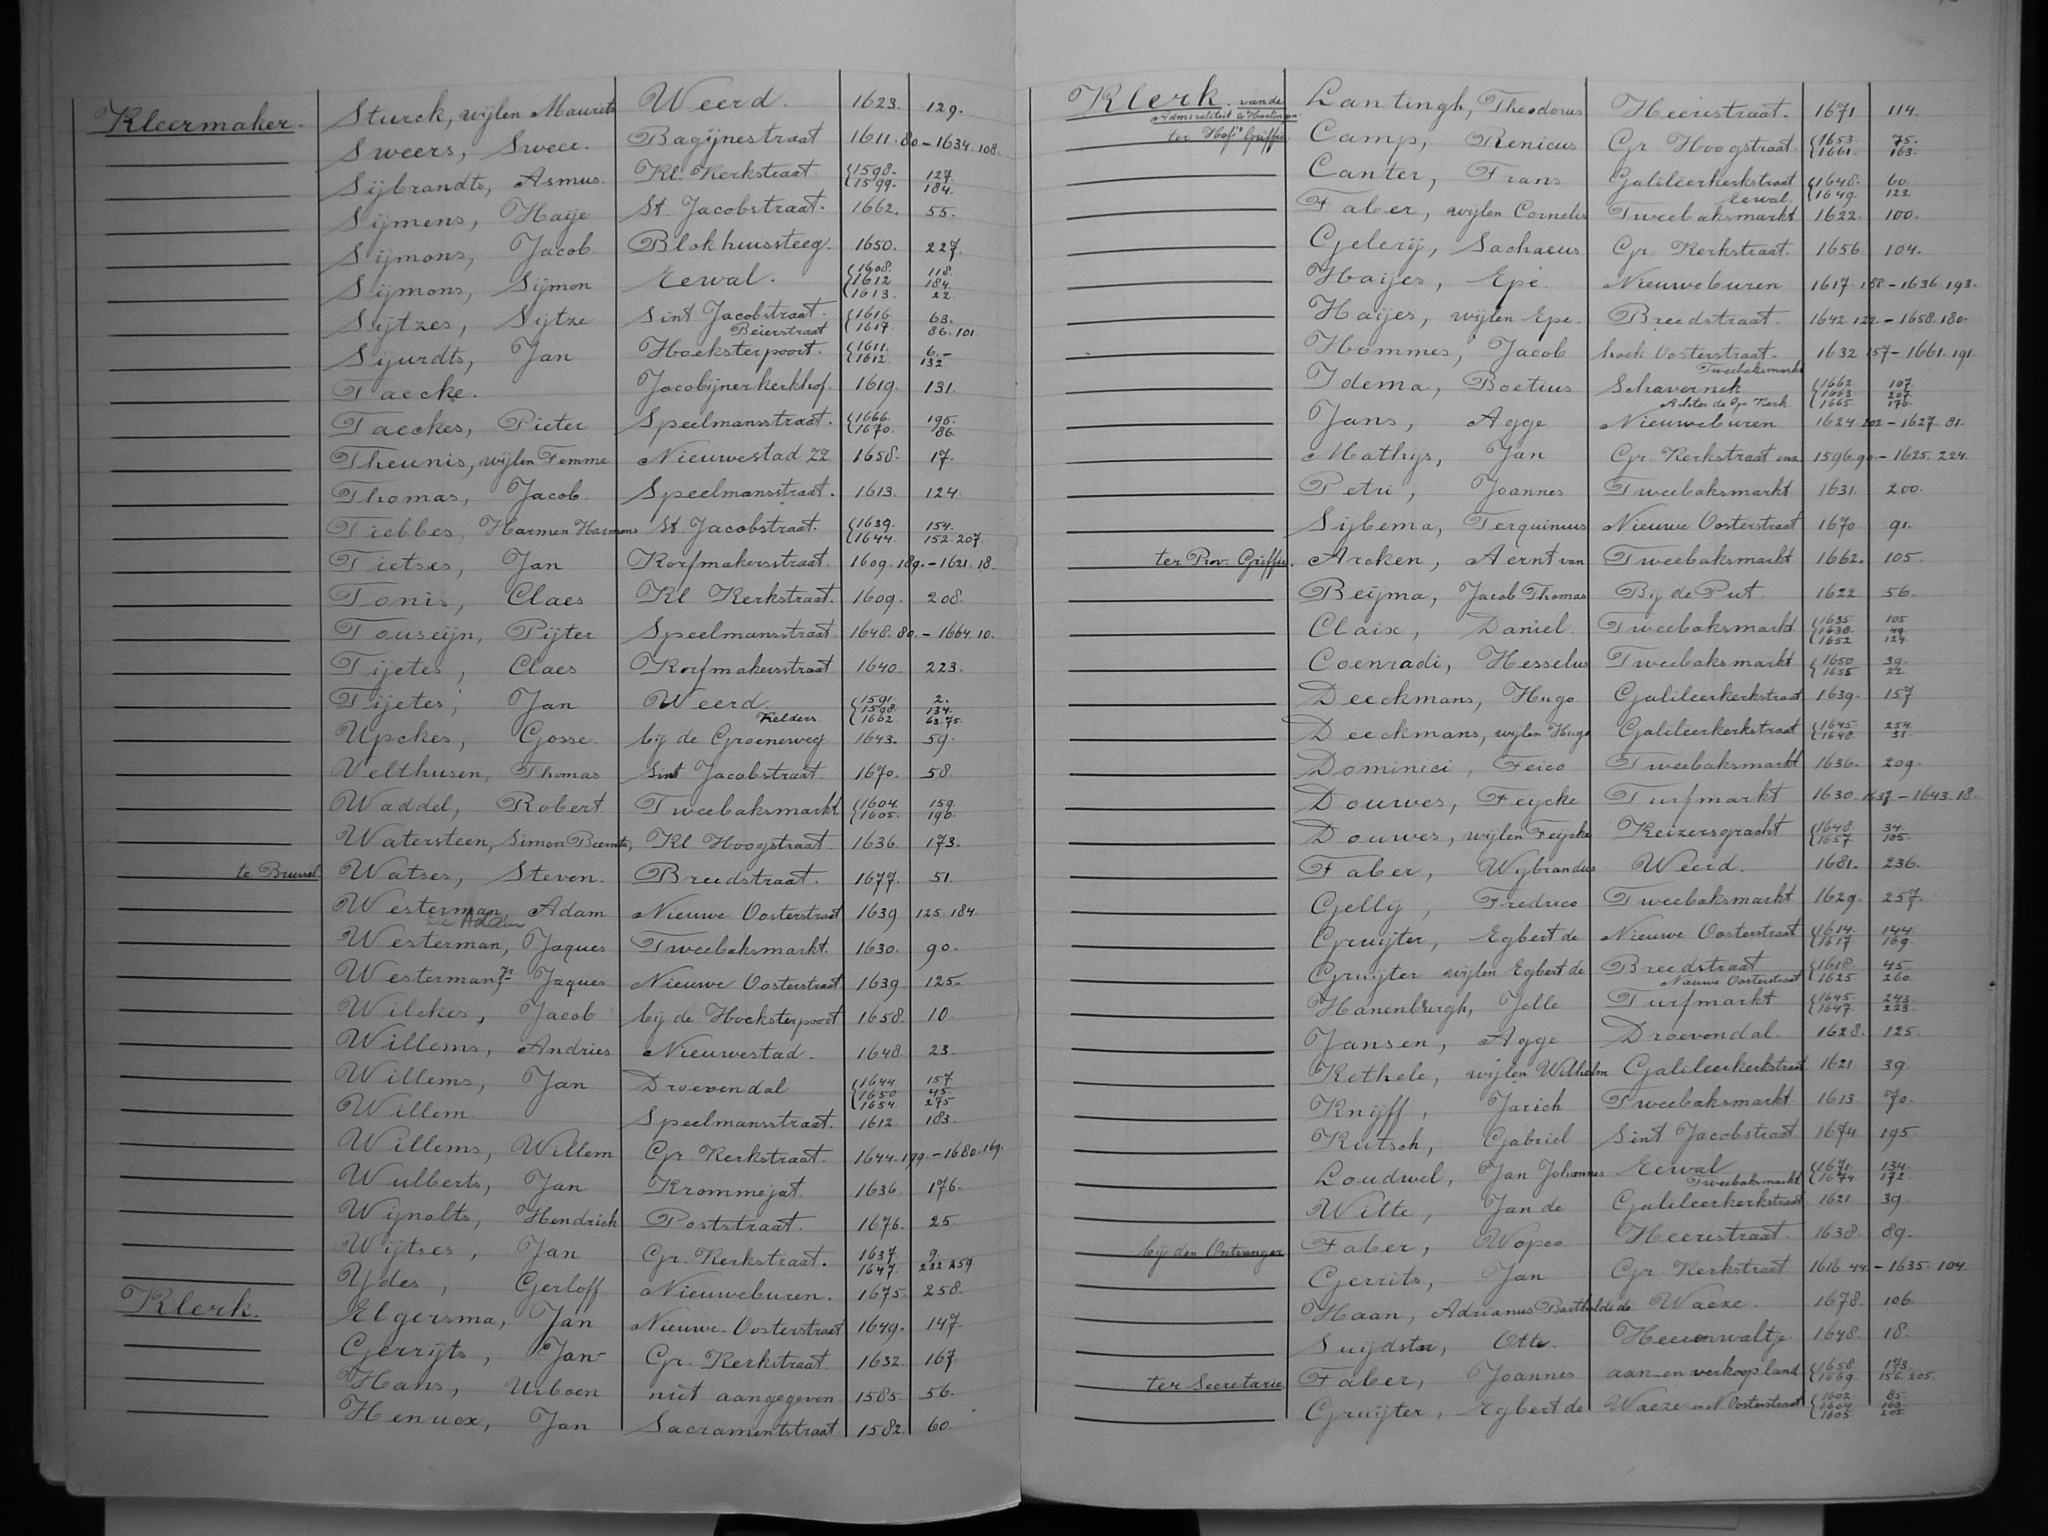 Kleermaker. Sturck, wijlen Maurits Weerd. 1623. 129.
Sweers, Sweer. Bagijnestraat 1611. 80 - 1634. 108.
Sijbrandts, Asmus. Kl. Kerkstraat. 1598. 127
1599. 184.
Sijmens, Haije St. Jacobstraat. 1662. 55.
Sijmons, Jacob. Blokhuissteeg. 1650. 227.
Sijmons, Sijmon Eewal. 1608. 118.
1612 184.
1613. 22.
Sijtzes, Sijtze Sint Jacobstraat. 1616. 63.
Beierstraat 1617. 86. 101
Sijurdts, Jan Hoeksterpoort. 1611. 6.
1612. 132
Taecke. Jacobijnerkerkhof. 1619. 131.
Taeckes, Pieter Speelmansstraat. 1666. 195.
1670. 86.
Theunis, wijlen Femme Nieuwestad ZZ 1658. 17.
Thomas, Jacob. Speelmansstraat. 1613. 124.
Tiebbes, Harmen Harmens St. Jacobstraat. 1639. 154.
1644. 152. 207.
Tietses, Jan Korfmakersstraat. 1609. 189. - 1621. 18.
Tonis, Claes Kl. Kerkstraat. 1609. 208.
Touseijn, Pijter Speelmansstraat 1648. 80. - 1664. 10.
Tijetes, Claes Korfmakersstraat 1640. 223.
Tijetes, Jan Weerd. 1591. 2.
1598. 134.
Kelders 1662 63. 75.
Upckes, Gosse. bij de Groeneweg 1643. 59.
Velthusen, Thomas Sint Jacobstraat. 1670. 58.
Waddel, Robert Tweebaksmarkt 1604. 159.
1605. 196.
Watersteen, Simon Beernts, Kl. Hoogstraat. 1636. 173.
te Brussel. Watses, Steven. Breedstraat. 1677. 51.
Westerman, Adam Nieuwe Oosterstraat 1639 125. 184.
zie Adam
Westerman, Jaques Tweebaksmarkt. 1630. 90.
Westerman, Jr Jaques Nieuwe Oosterstraat 1639 125.
Wilckes, Jacob bij de Hoeksterpoort 1658. 10.
Willems, Andries Nieuwestad. 1648 23.
Willems, Jan Droevendal 1644. 157
1650 45.
1654. 275
Willem Speelmansstraat. 1612. 183.
Willems, Willem Gr. Kerkstraat. 1644. 199. - 1680. 169.
Wulberts, Jan Krommejat. 1636 176.
Wijnolts, Hendrick Poststraat. 1676. 25.
Wijtses, Jan Gr. Kerkstraat. 1637. 9.
1647. 232 259
Ydes, Gerloff Nieuweburen. 1675. 258.
Klerk. Elgersma, Jan Nieuwe Oosterstraat 1649. 147.
Gerrijts, Jan Gr. Kerkstraat. 1632. 167
Hans, Urbaen niet aangegeven 1585. 56.
Henricx, Jan Sacramentstraat 1582. 60.
Klerk. van de Lantingh, Theodorus Heerestraat. 1671 114.
Admiraliteit te Harlingen
ter Hofs Griffie Camp, Renicus Gr. Hoogstraat. 1653. 75.
1661. 163.
Canter, Frans Galileerkerkstraat 1648. 60.
Eewal. 1649. 122
Faber, wijlen Cornelis Tweebaksmarkt 1622. 100.
Gelerij, Sachaeus Gr. Kerkstraat. 1656 104.
Haijes, Epe. Nieuweburen 1617. 188 - 1636. 193.
Haijes, wijlen Epe. Breedstraat. 1642. 122 - 1658. 180.
Hommes, Jacob hoek Oosterstraat. 1632 157 - 1661. 191.
Tweebaksmarkt
Idema, Boetius Schavernek 1662 107.
1663 207.
Achter de Gr. Kerk 1665. 176.
Jans, Agge Nieuweburen 1624. 202 - 1627. 81.
Mathijs, Jan Gr. Kerkstraat enz 1596. 90 - 1625. 224.
Petri, Joannes Tweebaksmarkt 1631. 200.
Sijbema, Terquinius Nieuwe Oosterstraat 1670. 91.
ter Prov. Griffie. Arcken, Aernt van Tweebaksmarkt 1662. 105.
Beijma, Jacob Thomas Bij de Put. 1622 56.
Claix, Daniel. Tweebaksmarkt 1635 105
1638. 49.
1652 124.
Coenradi, Hesselus Tweebaksmarkt 1650 39.
1655 22.
Deeckmans, Hugo Galileerkerkstraat 1639. 157
Deeckmans, wijlen Hugo Galileerkerkstraat 1645. 254.
1648. 31.
Dominici, Feico Tweebaksmarkt 1636. 209.
Douwes, Feycke Turfmarkt 1630. 137 - 1643. 18.
Douwes, wijlen Feijcke Keizersgracht 1648. 34.
1657. 105.
Faber, Wijbrandus Weerd. 1681. 236.
Gellij, Fredrico Tweebaksmarkt 1629. 257.
Gruijter, Egbert de Nieuwe Oosterstraat 1614. 144.
1617 169.
Gruijter wijlen Egbert de Breedstraat 1618. 45.
Nieuwe Oosterstraat 1625 260.
Hanenburgh, Jelle Turfmarkt 1645. 243.
1647. 223.
Jansen, Agge Droevendal. 1628. 125.
Kethele, wijlen Wilhelm Galileerkerkstraat 1621 39.
Knijff, Jarich Tweebaksmarkt. 1613 70.
Kutsch, Gabriel Sint Jacobstraat. 1674 195.
Loudwel, Jan Johannes Eewal 1671. 134.
Tweebaksmarkt 1674. 172.
Witte, Jan de Galileerkerkstraat 1621 39.
bij den Ontvanger Faber, Wopco Heerestraat. 1638. 89.
Gerrits, Jan Gr. Kerkstraat 1616. 44. - 1635. 104.
Haan, Adrianus Bartholdi de Waeze. 1678. 106
Suijdster, Otte. Heerenwaltje. 1648. 18.
ter Secretarie Faber, Joannes aan- en verkoop land 1658. 173.
1669. 156. 205.
Gruijter, Egbert de Waeze en N. Oosterstraat 1602 85.
1604 103.
1605 205.